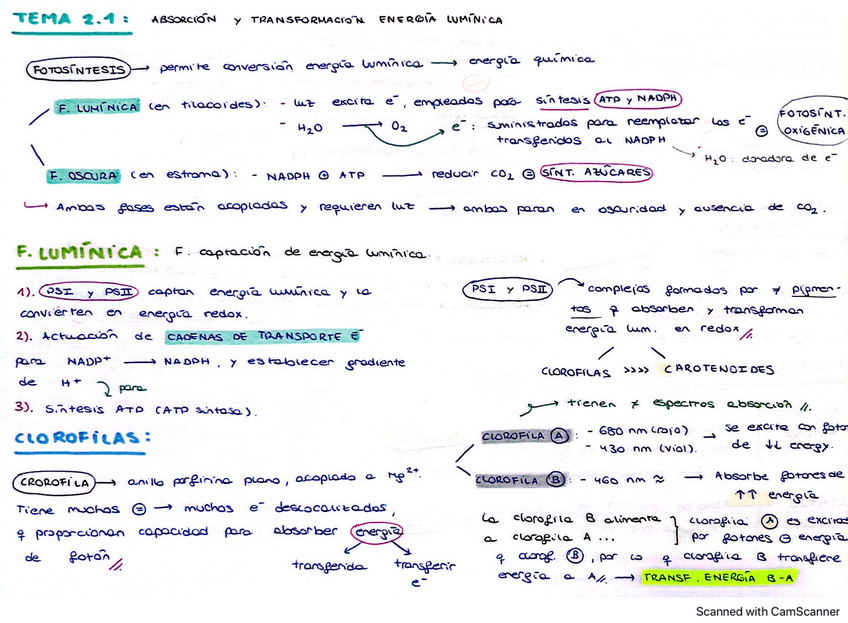 TEMA 2.1: ABSORCIÓN y TRANSFORMACIÓN ENERGÍA LUMÍNICA
FOTOSÍNTESIS → permite conversión energía lumínica → energía química
F. LUMÍNICA (en tilacoides): - luz excita e⁻, empleados para síntesis ATP y NADPH
- H₂O → O₂ e⁻: suministrados para reemplazar los e⁻ transferidos al NADPH = FOTOSÍNT. OXIGÉNICA
H₂O: donadora de e⁻
F. OSCURA (en estroma): - NADPH + ATP → reducir CO₂ = SÍNT. AZÚCARES
↳ Ambas fases están acopladas y requieren luz → ambas paran en oscuridad y ausencia de CO₂.
F. LUMÍNICA: F. captación de energía lumínica.
1). PSI y PSII captan energía lumínica y la
convierten en energía redox.
2). Actuación de CADENAS DE TRANSPORTE e⁻
para NADP⁺ → NADPH, y establecer gradiente
de H⁺ para
3). Síntesis ATP (ATP sintasa).
PSI y PSII complejos formados por ≠ pigmen-
tos q absorben y transforman
energía lum. en redox //.
CLOROFILAS >>>> CAROTENOIDES
→ tienen ≠ espectros absorción //.
CLOROFILAS:
CROROFILA → anillo porfirina plano, acoplado a Mg²⁺.
Tiene muchos = → muchos e⁻ deslocalizados,
q proporcionan capacidad para absorber energía
de fotón //.
transferida transferir
e⁻
CLOROFILA A: - 680 nm (rojo) → se excita con foto
- 430 nm (viol). de ↓↓ energy.
CLOROFILA B: - 460 nm ≈ → Absorbe fotones de
↑↑ energía
La clorofila B alimenta
a clorofila A ...
clorofila A es excita
por fotones ⊖ energía
q clorof. B, por lo q clorofila B transfiere
energía a A //. → TRANSF. ENERGÍA B-A
Scanned with CamScanner